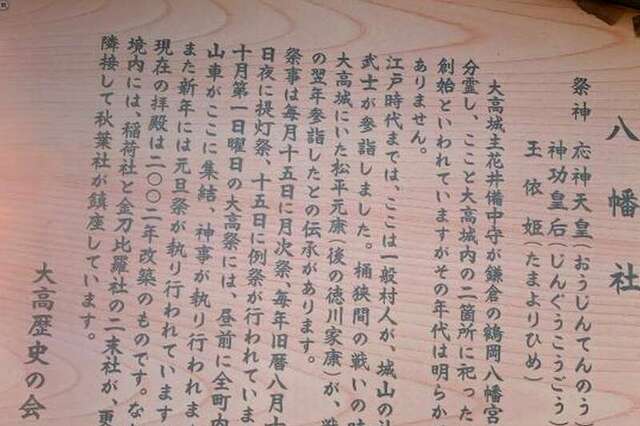 八幡社
祭神 応神天皇(おうじんてんのう)
神功皇后(じんぐうこうごう)
玉依姫(たまよりひめ)
大高城主花井備中守が鎌倉の鶴岡八幡宮
分霊し、ここと大高城内の二箇所に祀った
創始といわれていますがその年代は明らか
ありません。
江戸時代までは、ここは一般村人が、城山の
武士が参詣しました。桶狭間の戦いの時
大高城にいた松平元康(後の徳川家康)が、戦
の翌年参詣したとの伝承があります。
祭事は毎月十五日に月次祭、毎年旧暦八月十
日夜に提灯祭、十五日に例祭が行われていま
十月第一日曜日の大高祭には、昼前に全町内
山車がここに集結、神事が執り行われま
また新年には元旦祭が執り行われています
現在の拝殿は二〇〇二年改築のものです。な
境内には、稲荷社と金刀比羅社の二末社が、更
隣接して秋葉社が鎮座しています。
大高歴史の会